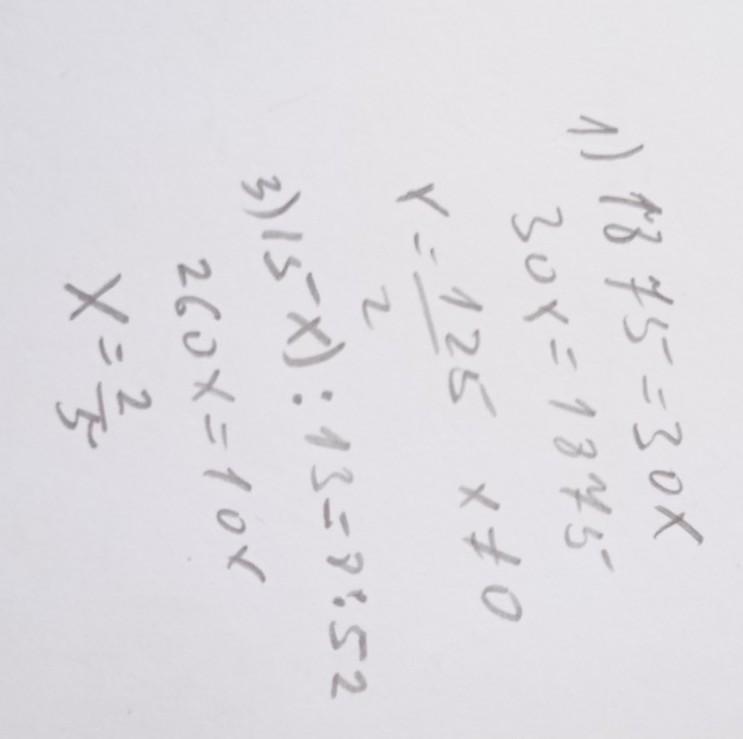 1) 1875=30x
30x=1875
x=125/2 x≠0
3) 15-x):13=8:52
260x=104
x=2/5